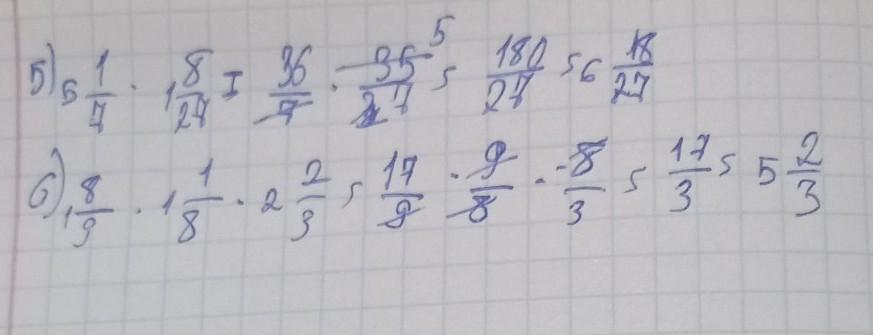 5) 5 1/7 · 1 8/27 = 36/7 · 35/27 5 = 180/27 = 6 18/27
6) 1 8/9 · 1 1/8 · 2 2/3 = 17/9 · 9/8 · 8/3 = 17/3 = 5 2/3